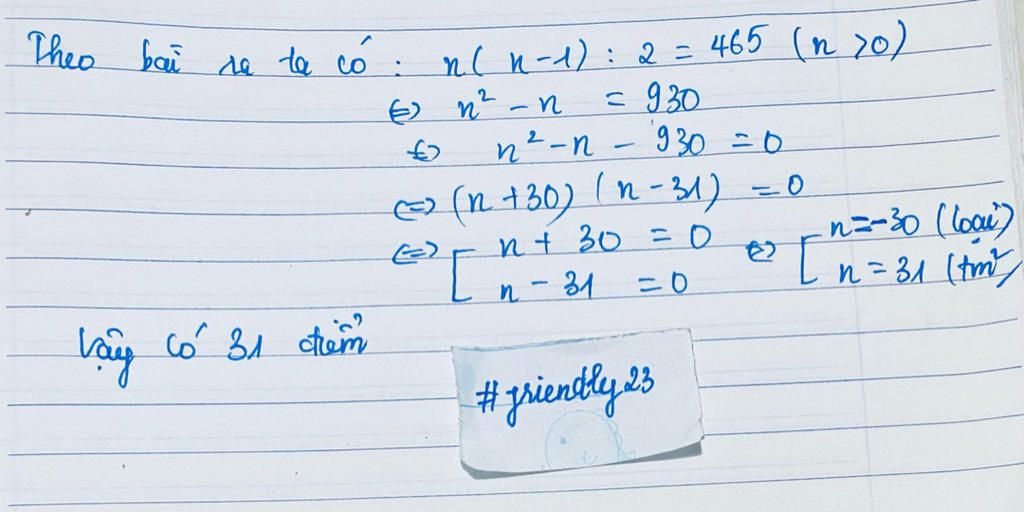 Theo bài ra ta có : n( n-1) : 2 = 465 (n >0)
⇔ n² - n = 930
⇔ n² - n - 930 = 0
⇔ (n +30) (n - 31) = 0
⇔ [ n + 30 = 0 ⇔ [ n=-30 (loại)
n - 31 = 0 n = 31 (tm)
Vậy có 31 điểm
#friendly23